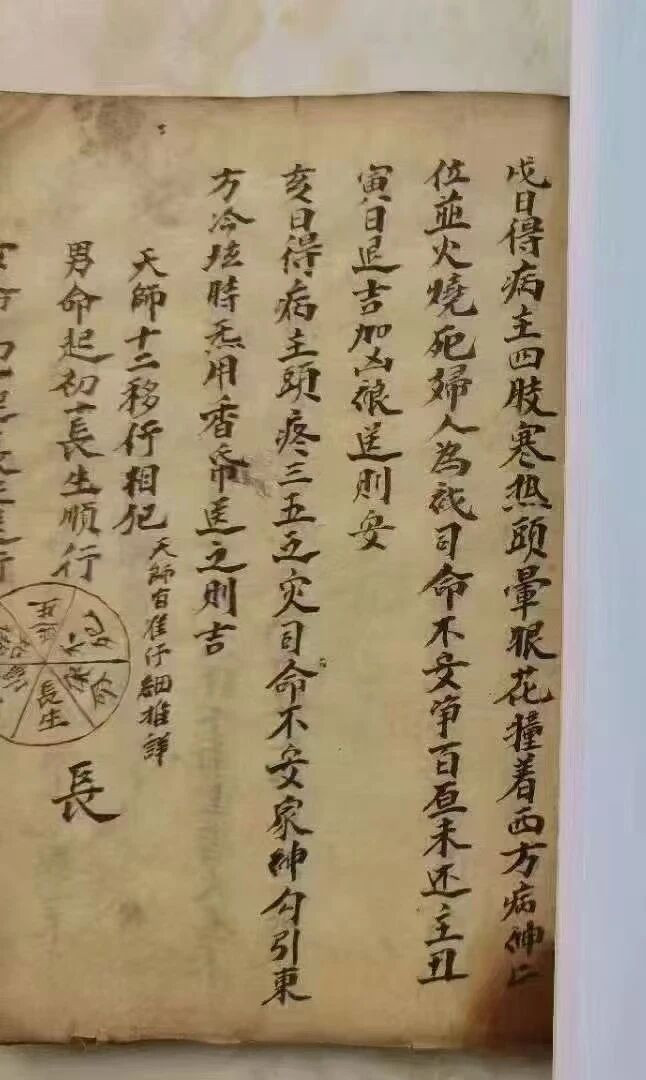 戌日得病主四肢寒热頭暈眼花撞着西方病神亡
位並火燒死婦人為祸司命不安爭百愿未还主丑
寅日退吉加凶很送則安
亥日得病主頭疼三五五灾司命不安家神勾引東
方冷坛時炁用香帋送之則吉
天師十二移行相犯 天師宮准仔細推詳
男命起初一長生順行
長生
長